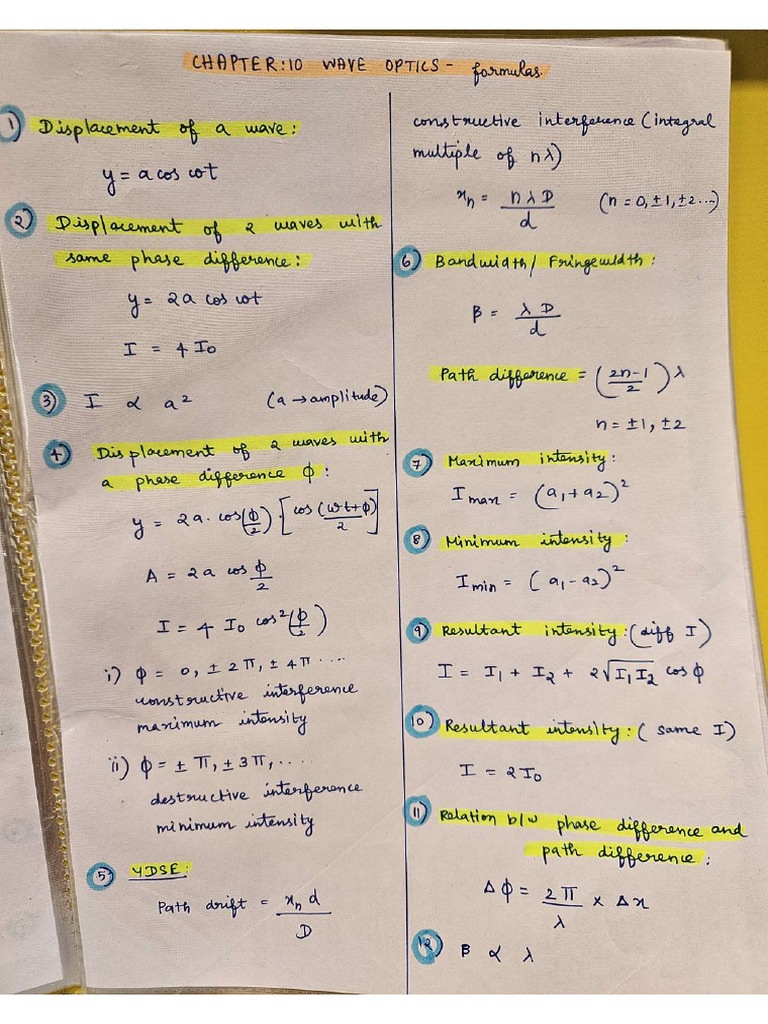 CHAPTER:10 WAVE OPTICS - formulas.
1) Displacement of a wave:
y = a cos ωt
2) Displacement of 2 waves with
same phase difference:
y = 2a cos ωt
I = 4 I₀
3) I ∝ a² (a → amplitude)
4) Displacement of 2 waves with
a phase difference ϕ:
y = 2a. cos(ϕ/2) [cos (ωt+ϕ)/2]
A = 2a cos ϕ/2
I = 4 I₀ cos²(ϕ/2)
i) ϕ = 0, ± 2π, ± 4π ....
constructive interference
maximum intensity
ii) ϕ = ± π, ± 3π, ....
destructive interference
minimum intensity
5) YDSE:
Path drift = xₙ d / D
constructive interference (integral
multiple of nλ)
xₙ = nλD / d (n = 0, ±1, ±2...)
6) Bandwidth / Fringewidth:
β = λ D / d
Path difference = (2n-1 / 2) λ
n = ±1, ±2
7) Maximum intensity:
I max = (a₁+a₂)²
8) Minimum intensity:
I min = (a₁-a₂)²
9) Resultant intensity: (diff I)
I = I₁ + I₂ + 2√I₁I₂ cos ϕ
10) Resultant intensity: ( same I)
I = 2I₀
11) Relation b/w phase difference and
path difference:
Δϕ = 2π / λ × Δx
12) β ∝ λ